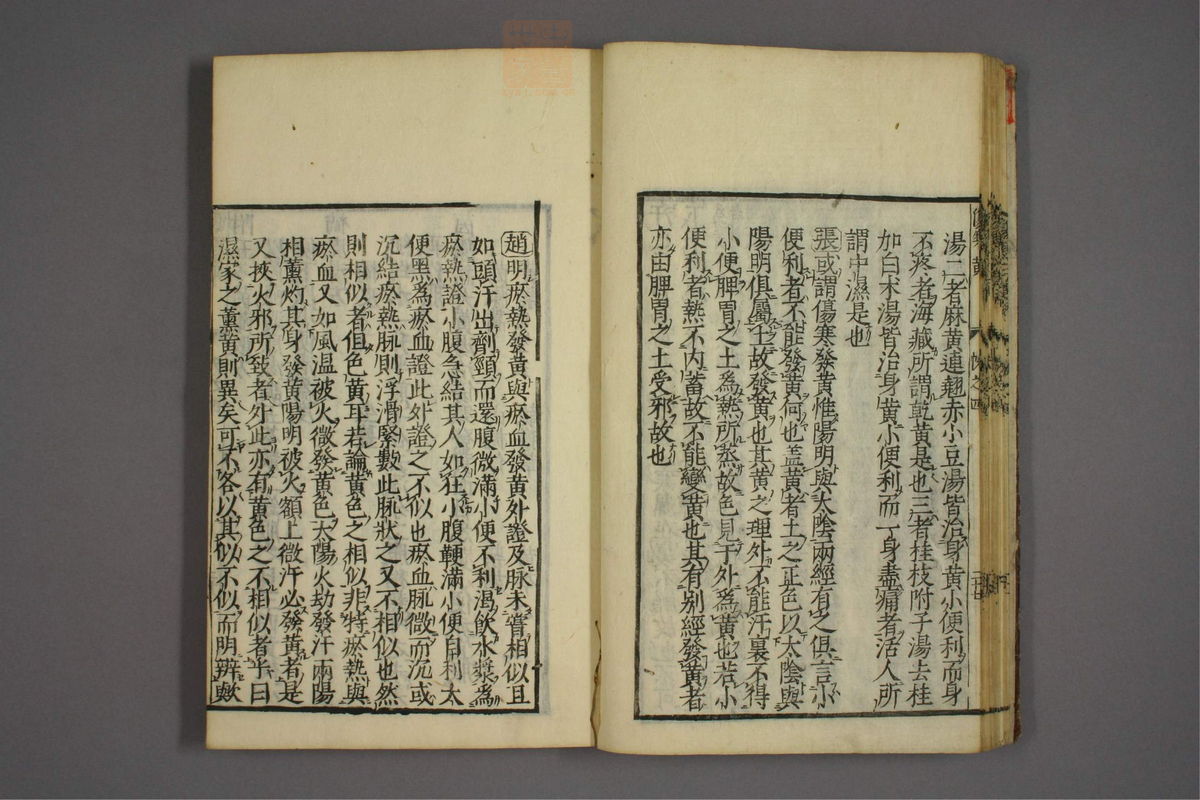 湯二者麻黄連翹赤小豆湯皆治身黄小便利而身
不疼者海藏所謂乾黄是也三者桂枝附子湯去桂
加白朮湯皆治身黄小便利而一身盡痛者活人所
謂中濕是也
張或謂傷寒發黄惟陽明與太陰兩經有之俱言小
便利者不能發黄何也蓋黄者土之正色以太陰與
陽明俱屬土故發黄也其黄之理外不能汗裏不得
小便脾胃之土為熱所蒸故色見于外為黄也若小
便利者熱不内蓄故不能變黄也其有别經發黄者
亦由脾胃之土受邪故也
趙明瘀熱發黄與瘀血發黄外證及脉未嘗相似且
如頭汗出劑頸而還腹微滿小便不利渇飲水漿為
瘀熱證小腹急結其人如狂小腹鞕滿小便自利太
便黒為瘀血證此外證之不似也瘀血脉微而沉或
沉結瘀熱脉則浮滑緊數此脉狀之又不相似也然
則相似者但色黄耳若論黄色之相似非特瘀熱與
瘀血又如風温被火微發黄色太陽火劫發汗兩陽
相薰灼其身發黄陽明被火額上微汗必發黄者是
又挾火邪所致者外此亦有黄色之不相似者乎曰
濕家之薰黄則異矣可不各以其似不似而明辨歟